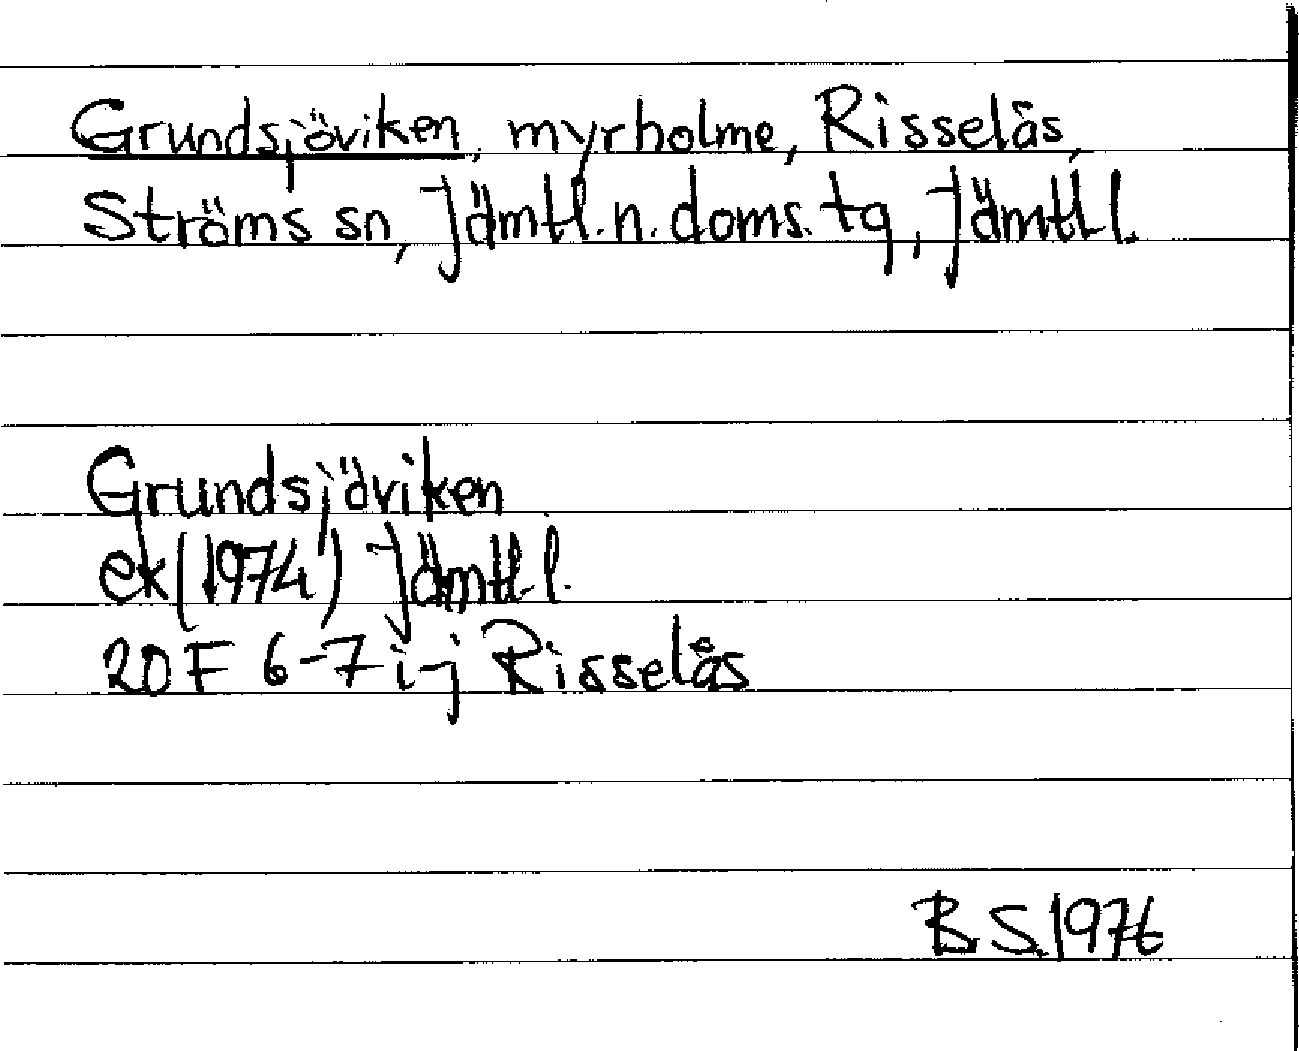 Grundsjöviken, myrholme, Risselås,
Ströms sn, Jämtl. n. doms. tg, Jämtl. l.
Grundsjöviken
ek (1974) Jämtl. l.
20 F 6-7 i-j Risselås
B.S. 1976